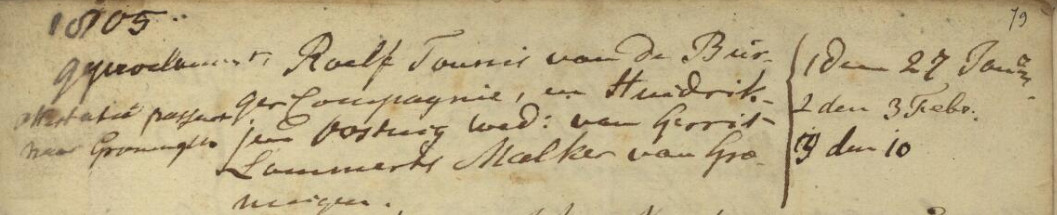 1805.
79
geproclameert Roelf Tonnis van de Bur-
ger Compagnie, en Hindrik-
jen Oosting wed: van Gerrit
Lammerts Malker van Gro-
ningen.
attestatie passeert
naar Groningen
1 den 27 Janu.
2 den 3 Febr.
3 den 10